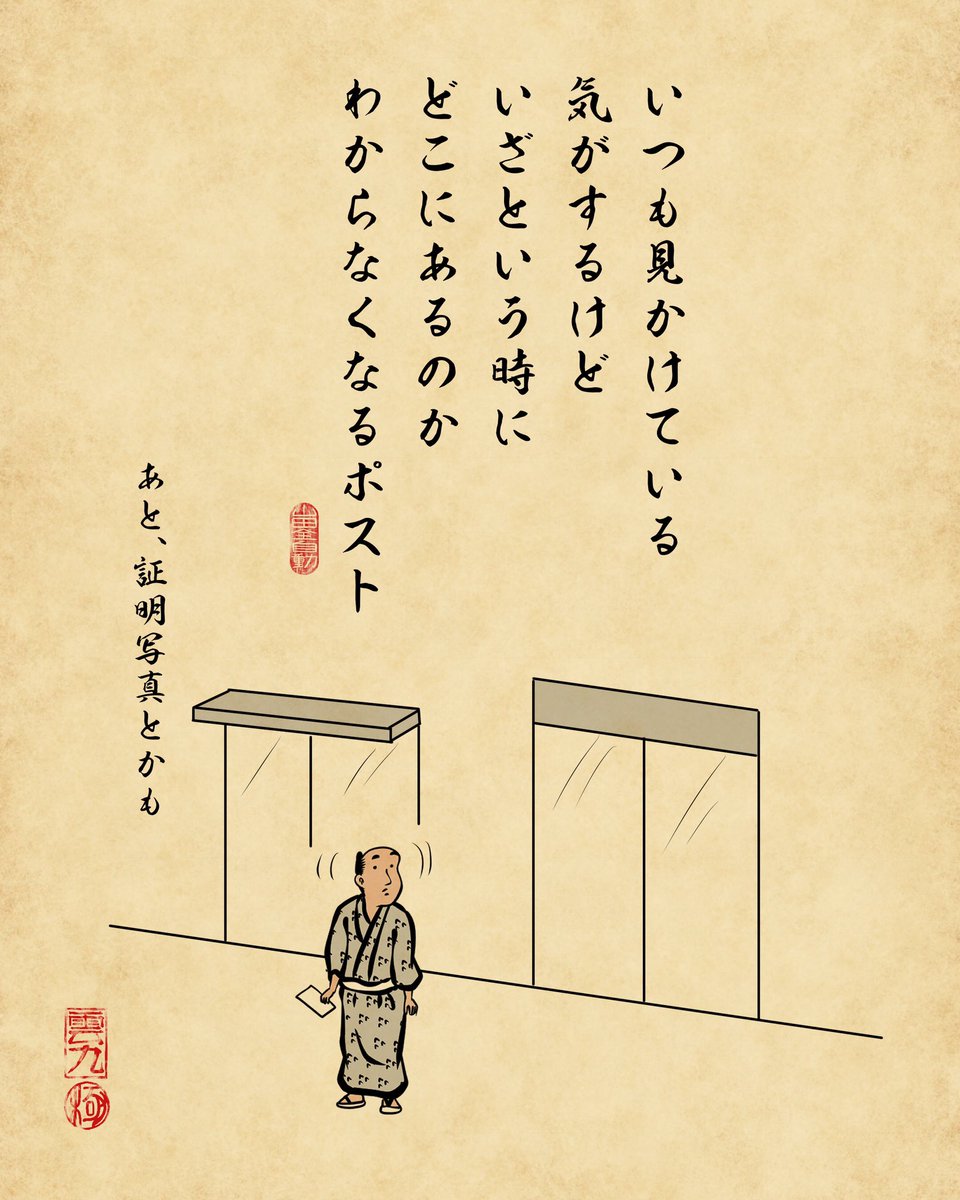 いつも見かけている
気がするけど
いざという時に
どこにあるのか
わからなくなるポスト
あと、証明写真とかも